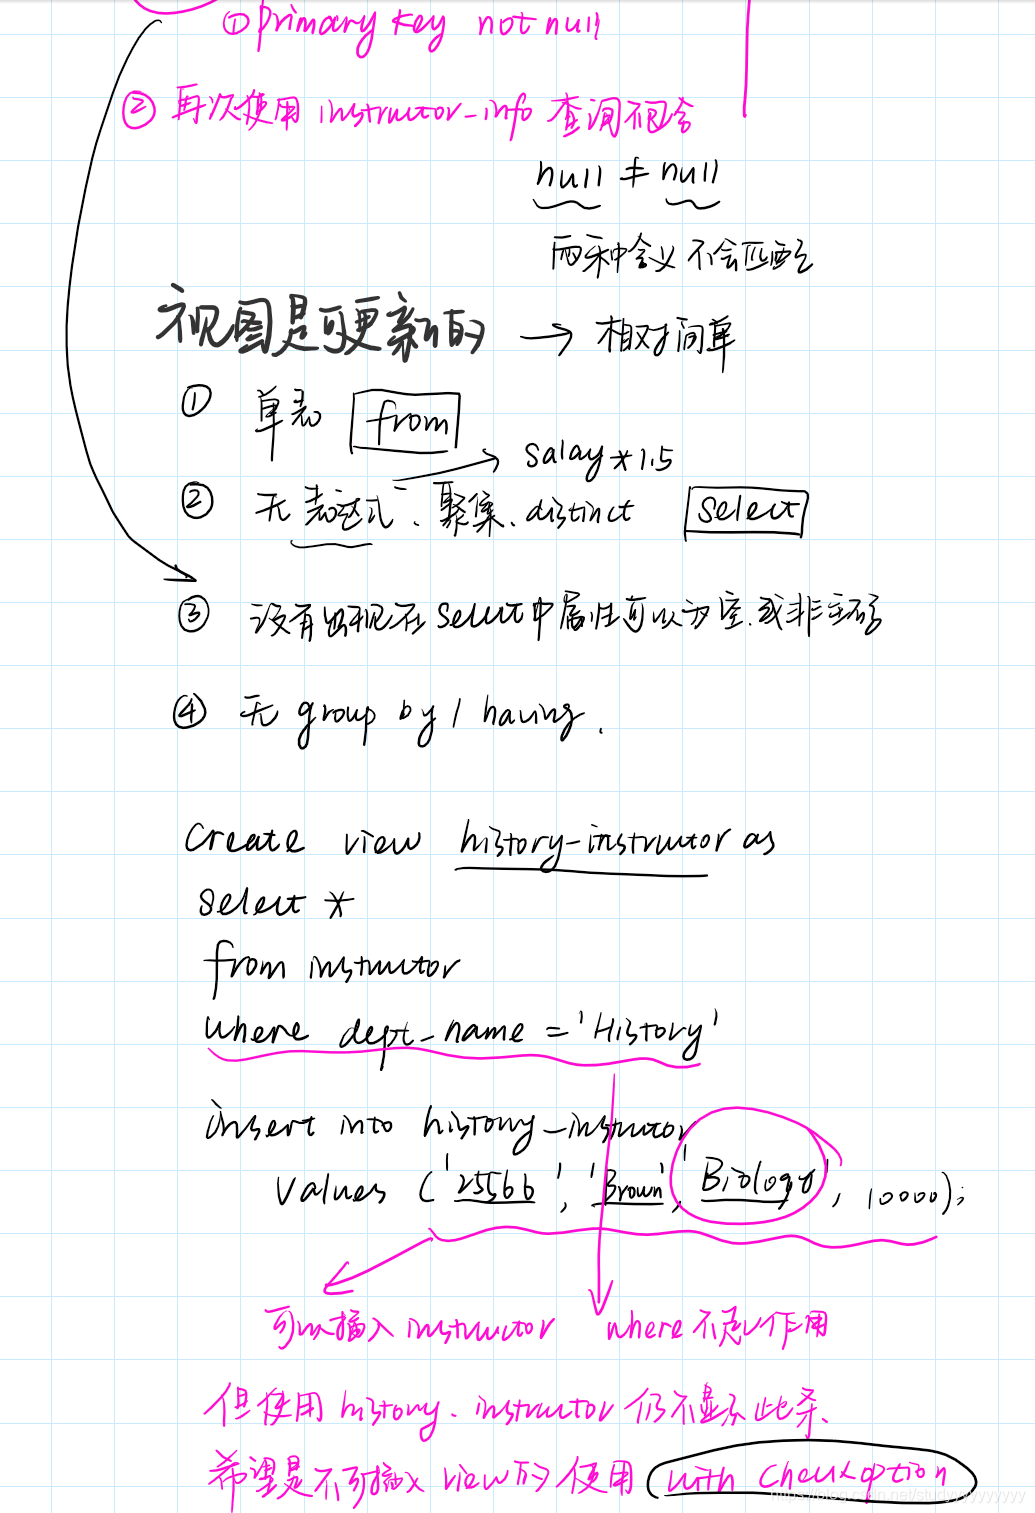 ① primary key not null
② 再次使用 instructor_info 查询不包含
null ≠ null
两种含义 不会匹配
视图是可更新的 → 相对简单
① 单表 from
salay * 1.5
② 无 表达式、聚集、distinct select
③ 没有出现在 select 中属性可以为空.或非主码
④ 无 group by / having.
Create view history-instructor as
select *
from instructor
where dept_name = 'History'
insert into history_instructor
values ('25566', 'Brown', 'Biology', 10000);
可以插入 instructor where 不起作用
但使用 history. instructor 仍不显示此条.
希望是不可插入 view 的 使用 with check option
https://blog.csdn.net/studyyyyyyyyyyy